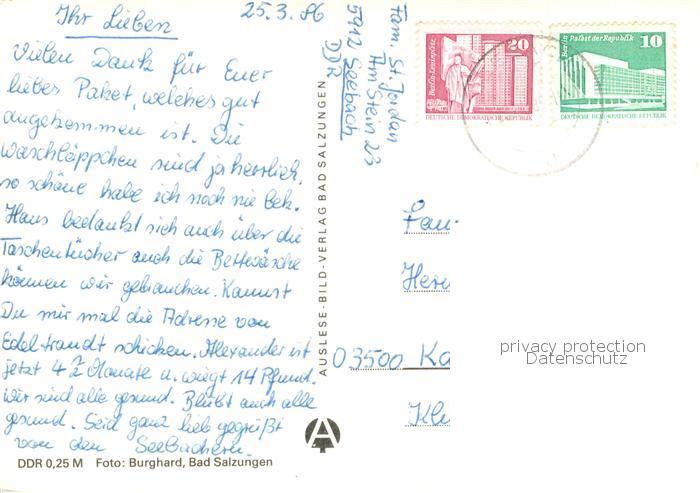 25.3.86
Ihr Lieben
Vielen Dank für Euer
liebes Paket, welches gut
angekommen ist. Die
Waschläppchen sind ja herrlich,
so schöne habe ich noch nie bek.
Hans bedankt sich auch über die
Taschentücher auch die Bettwäsche
können wir gebrauchen. Kannst
Du mir mal die Adresse von
Edeltraudt schicken. Alexander ist
jetzt 4 1/2 Monate u. wiegt 14 Pfund.
Wir sind alle gesund. Bleibt auch alle
gesund. Seid ganz lieb gegrüßt
von den Seebachern.
DDR 0,25 M Foto: Burghard, Bad Salzungen
AUSLESE-BILD-VERLAG BAD SALZUNGEN
Fam. St. Jordan
Am Stein 23
5912 Seebach
DDR
Berlin-Leninplatz
20
DEUTSCHE DEMOKRATISCHE REPUBLIK
Berlin Palast der Republik
10
DEUTSCHE DEMOKRATISCHE REPUBLIK
Fam
Herm
03500 Ka
Kli
privacy protection
Datenschutz